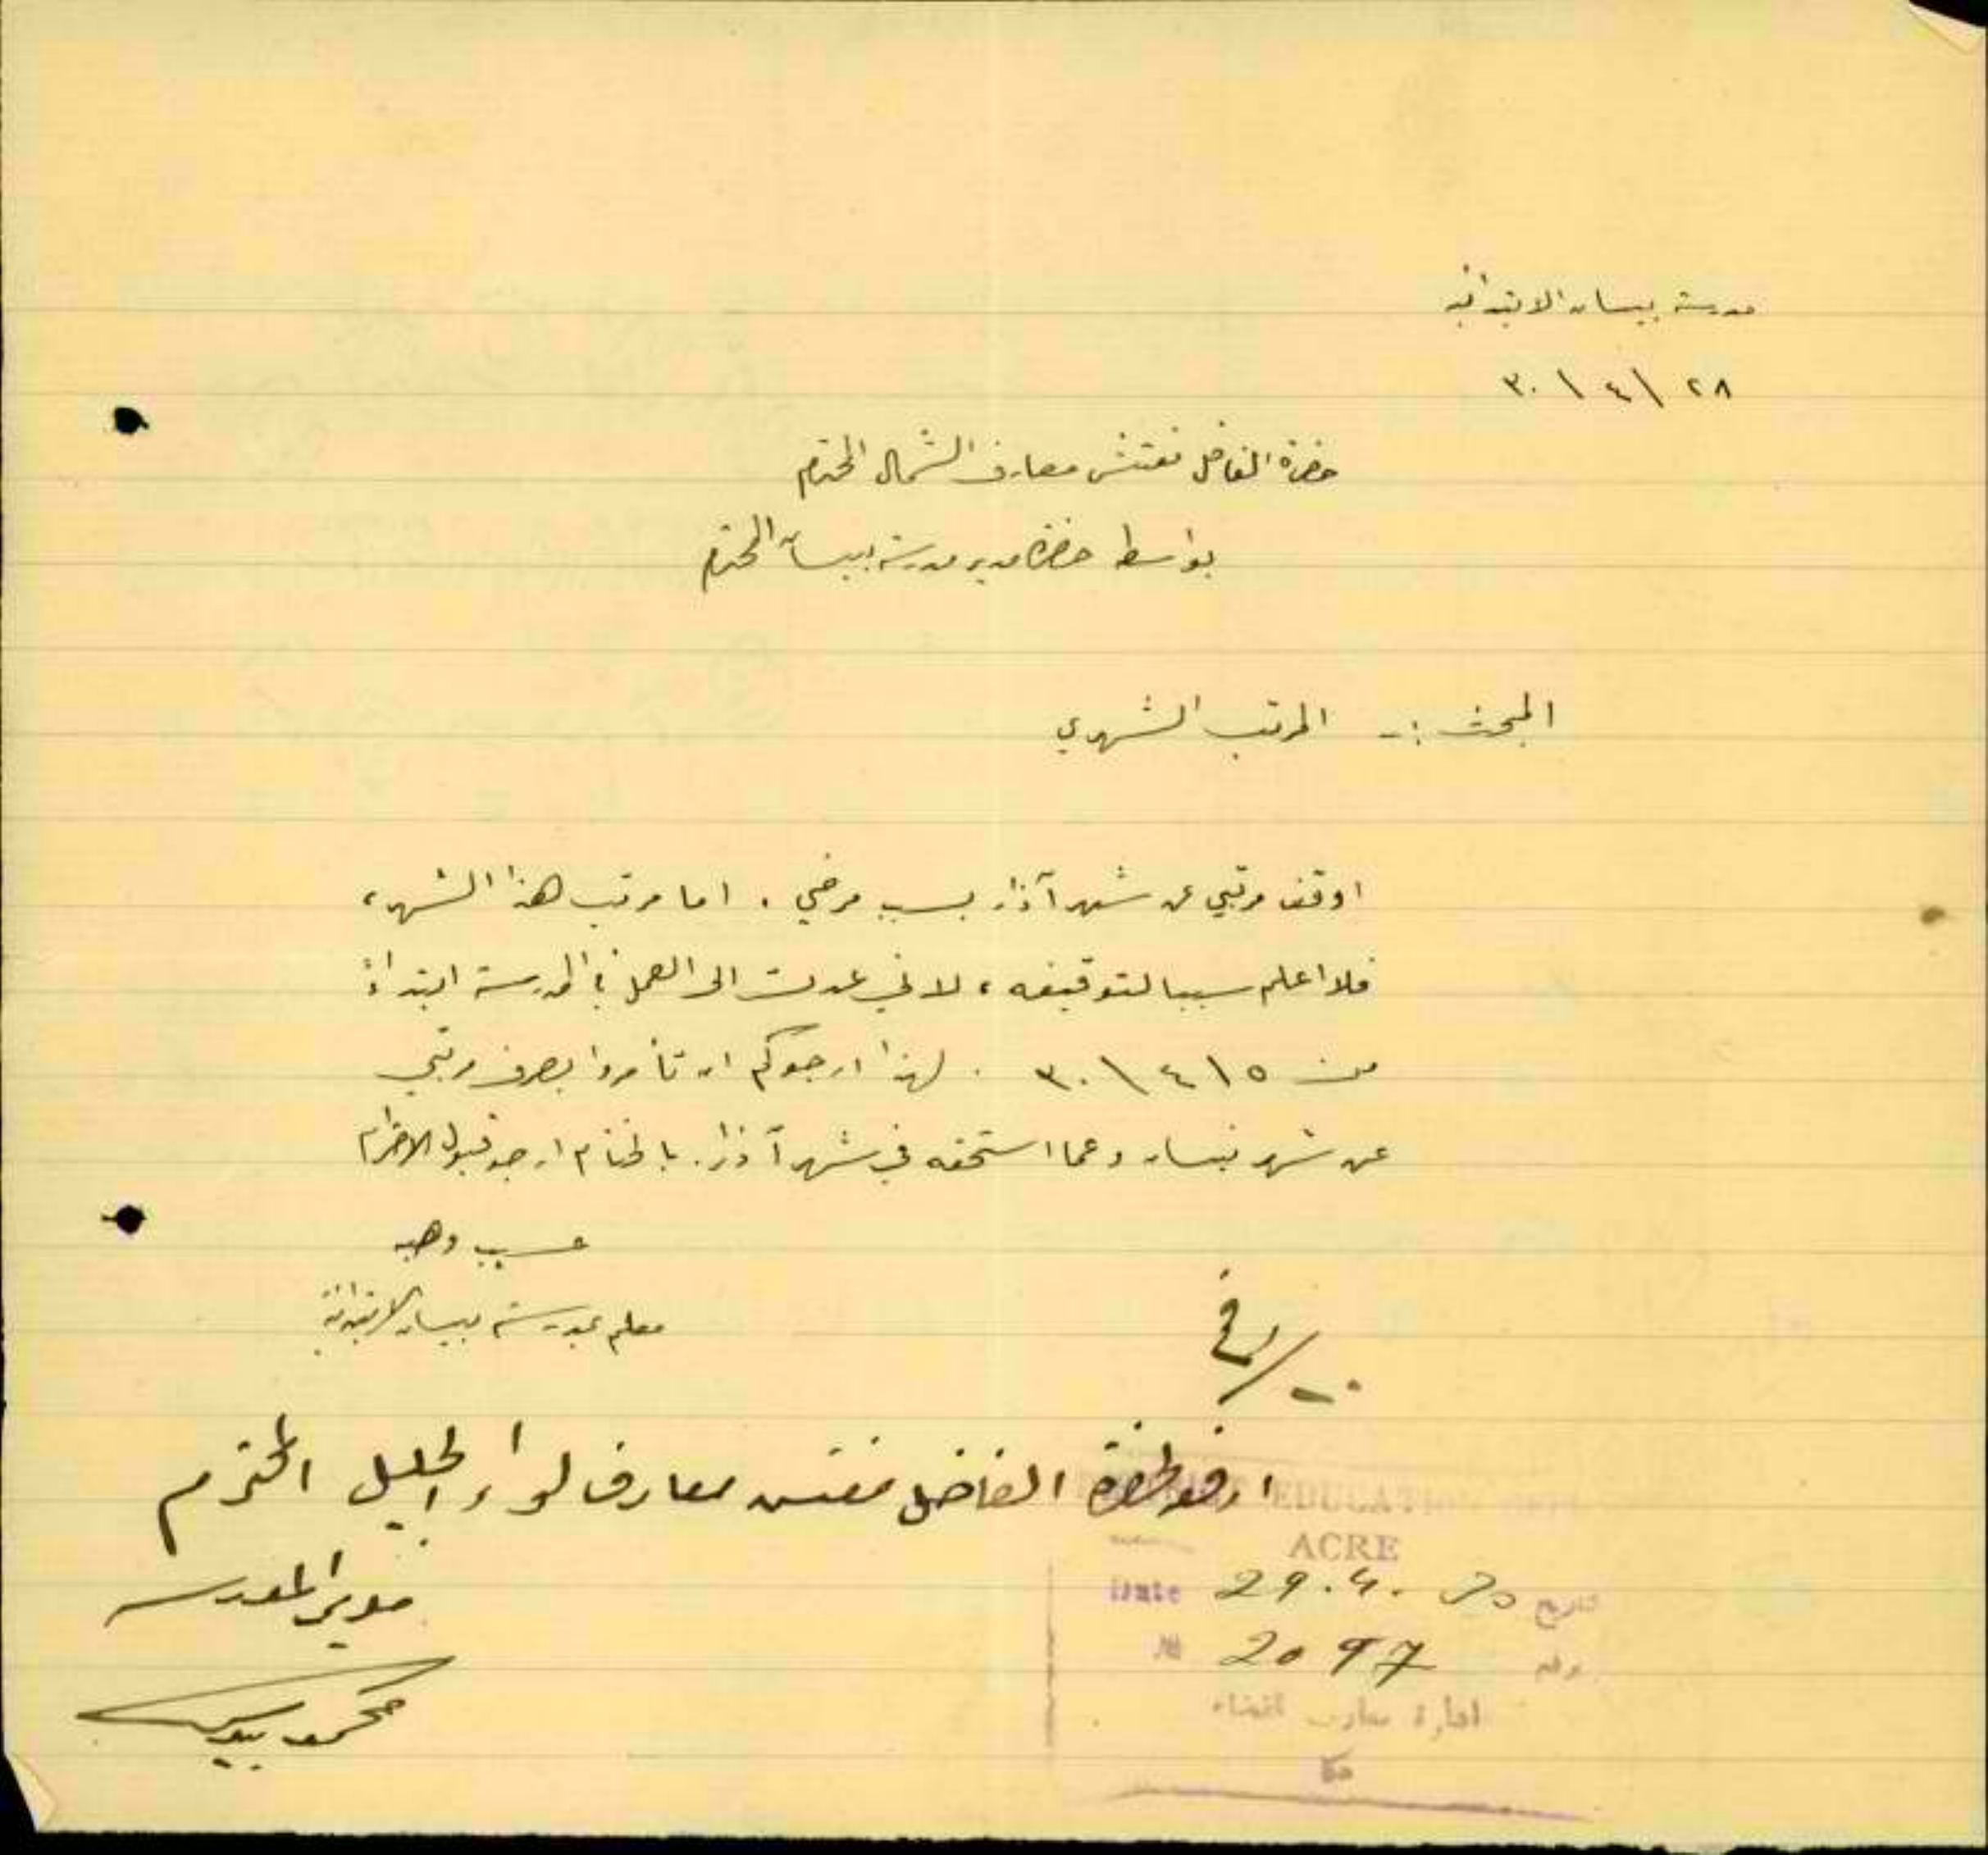 مدرسة بيسان الابتدائية
٢٨ \ ٤ \ ٣٠
حضرة الفاضل مفتش معارف الشمال المحترم
بواسطة حضرة مدير مدرسة بيسان المحترم
المبحث :- المرتب الشهري
اوقف مرتبي عن شهر آذار بسبب مرضي . اما مرتب هذا الشهر ،
فلا اعلم سببا لتوقيفه ، لاني عدت الى العمل في المدرسة ابتداءً
من ٥ \ ٤ \ ٣٠ . لهذا ارجوكم ان تأمروا بصرف مرتبي
عن شهر نيسان وعما استحقه في شهر آذار. بالختام ارجو قبول الاحترام
وهبه
معلم بمدرسة بيسان الابتدائية
ارفع لحضرة الفاضل مفتش معارف لواء الجليل المحترم
مدير المدرسة
محمود
EDUCATION
ACRE
Date 29.4. تاريخ
№ 2097
ادارة معارف القضاء
عكا